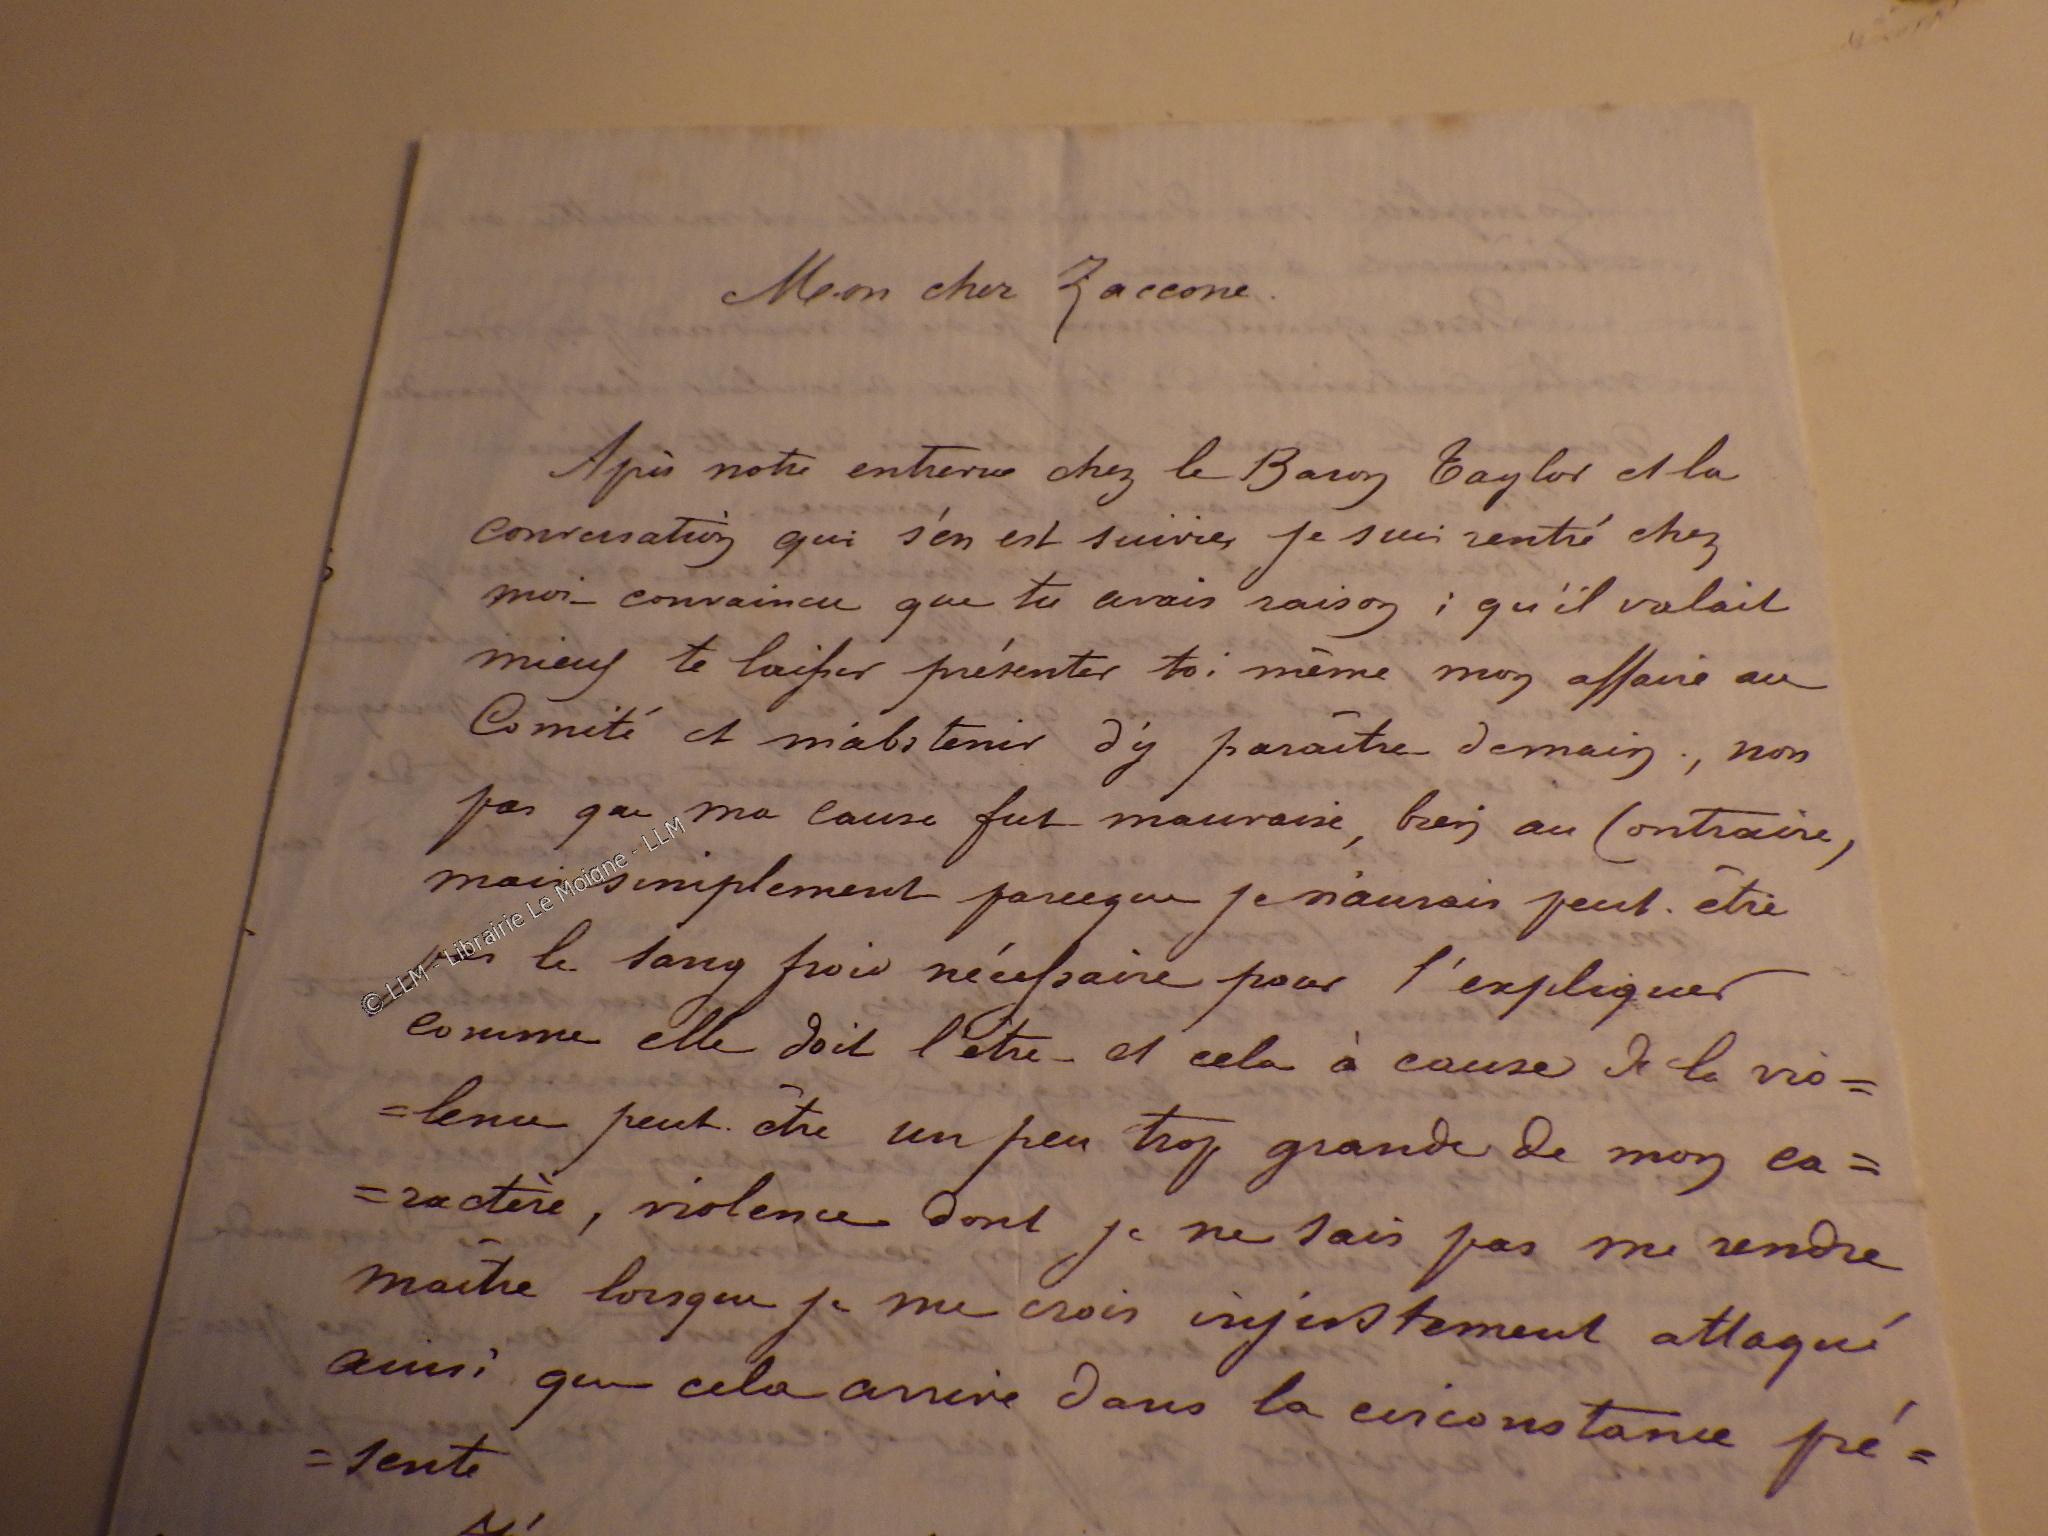 Mon cher Zaccone.
Après notre entrevue chez le Baron Taylor et la
conversation qui s'en est suivie, je suis rentré chez
moi convaincu que tu avais raison ; qu'il valait
mieux te laisser présenter toi même mon affaire au
Comité et m'abstenir d'y paraître demain ., non
pas que ma cause fut mauvaise, bien au Contraire,
mais simplement parceque je n'aurais peut-être
pas le sang froid nécessaire pour l'expliquer
comme elle doit l'être et cela à cause de la vio=
=lence peut-être un peu trop grande de mon ca=
=ractère, violence dont je ne sais pas me rendre
maître lorsque je me crois injustement attaqué
ainsi que cela arrive dans la circonstance pré=
=sente
© LLM - Librairie Le Moigne - LLM